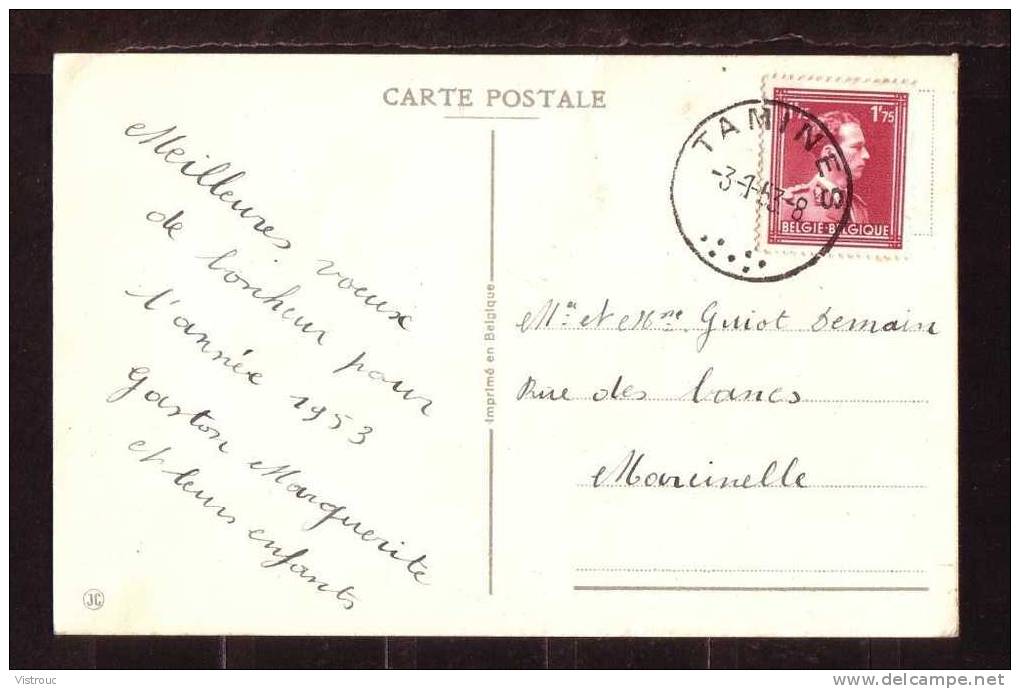 CARTE POSTALE
Meilleures voeux
de bonheur pour
l'année 1953
Gaston Marguerite
et leurs enfants
JC
Imprimé en Belgique
TAMINES
-3-1-53-8
1F75
BELGIE-BELGIQUE
Mr et Mme Guiot Demain
Rue des bancs
Marcinelle
Vistrouc
delcampe.net